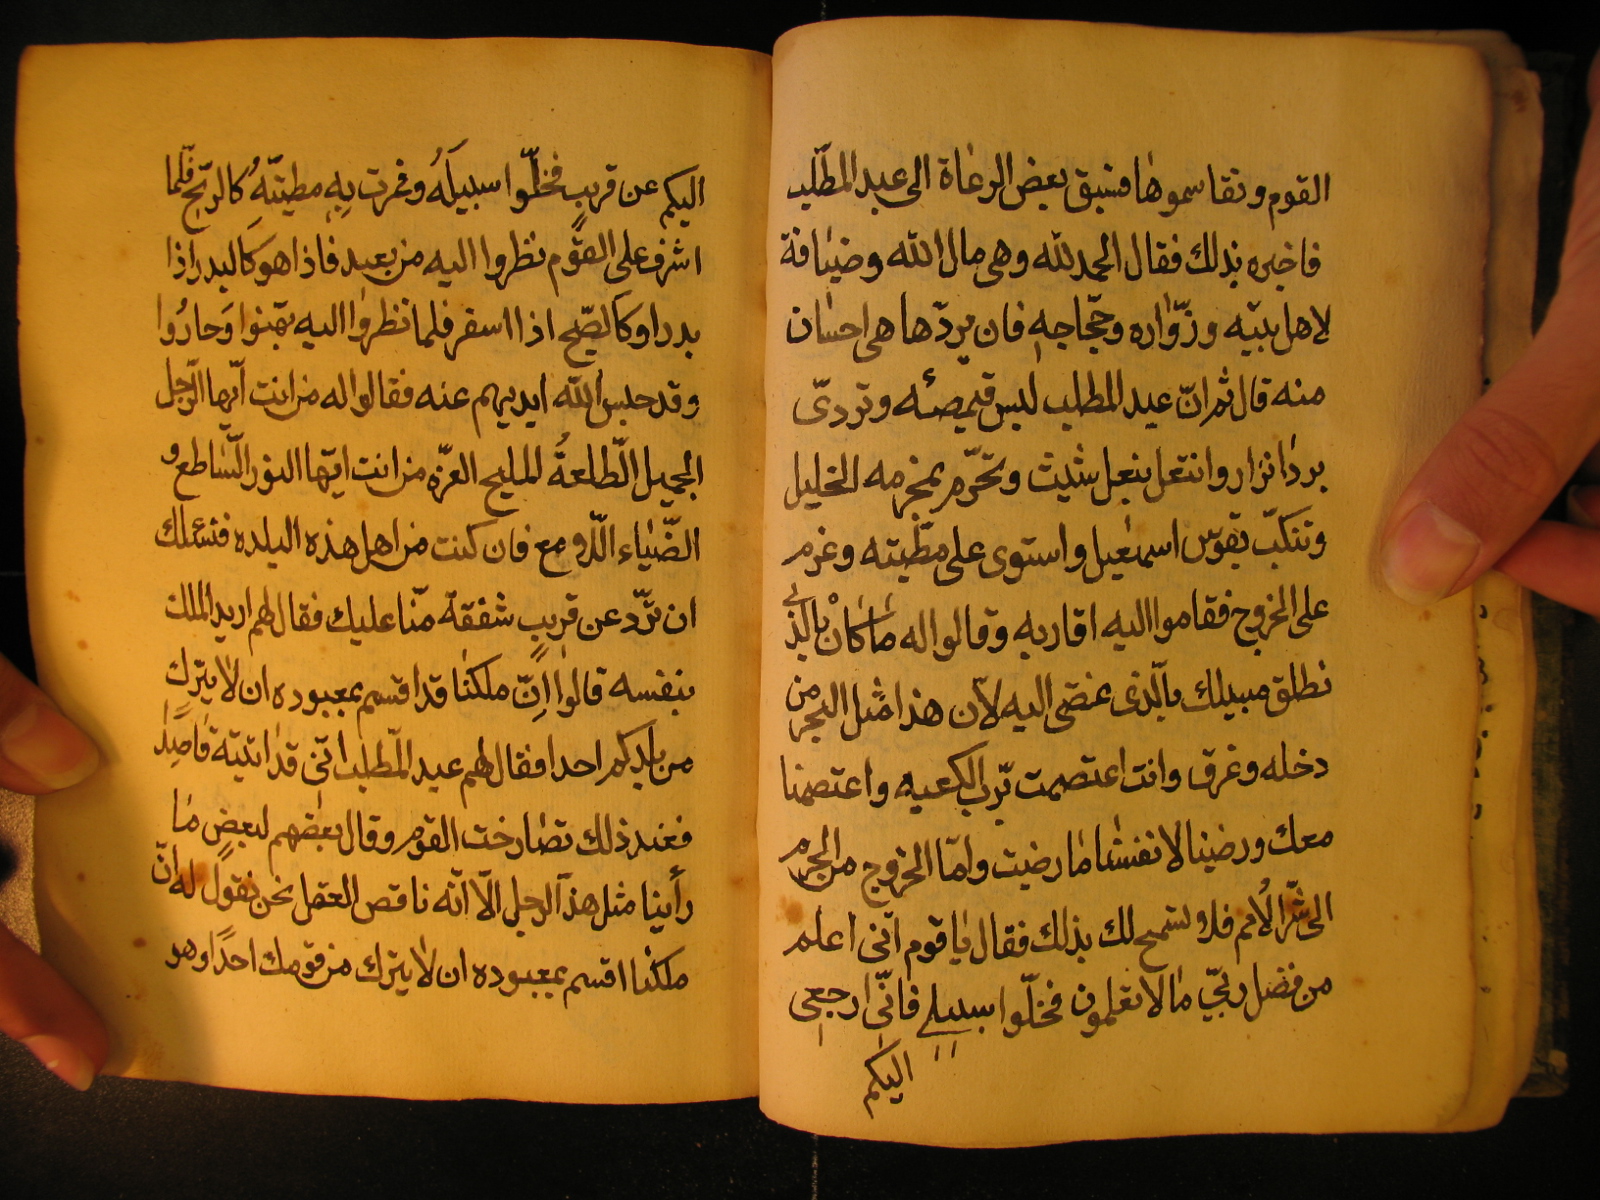 القوم وتقاسموها فسبق بعض الرعاة الى عبد المطّلب
فاخبره بذلك فقال الحمد للّه وهى مال اللّه وضيافة
لاهل بيته وزوّاره وحجّاجه فان يردّها هى احسان
منه قال ثم انّ عبد المطلب لبس قميصه وتردىّ
بردا نزار وانتعل بنعل شيث وتحزّم بمنجزمه الخليل
وتنكبّ بقوس اسمعيل واستوى على مطّيته وعزم
على الخروج فقاموا اليه اقاربه وقالوا له ما كان بالذى
نطلق سبيلك بالّذى عضى اليه لانّ هذا مثل البحر من
دخله وغرق وانت اعتصمت بّرب الكعبه واعتصمنا
معك ورضينا لانفسنا ما رضيت وامّا الخروج من الحرم
الى شّر الامم فلا نسمح لك بذلك فقال يا قوم انّى اعلم
من فضل ربّي ما لا تعلمون فخلّوا سبيلي فانّى ارجعى
اليكم
اليكم عن قريب فخلّوا سبيله ومرت به مطيتّه كالريح فلّما
اشرف على القوم نظروا اليه من بعيد فاذا هو كالبدر اذا
بدر او كالصّبح اذا اسفر فلما نظروا اليه بهتوا وحاروا
وقد حبس اللّه ايديهم عنه فقالوا له من انت ايّها الرّجل
الجميل الّطلعة المليح الغرّه من انت ايّها النور السّاطع و
الضّياء الّلامع فان كنت من اهل هذه البلده فنسئلك
ان تّرد عن قريب شفقة منّا عليك فقال لهم اريد الملك
بنفسه قالوا انّ ملكنا قد اقسم بمعبوده ان لا يترك
من بلدكم احدا فقال لهم عبد المطّلب انّى قد اتيته قاصدًا
فعند ذلك تصارخت القوم وقال بعضهم لبعض ما
رأينا مثل هذا الرجل الّا انّه ناقص العقل نحن نقول له انّ
ملكنا اقسم بمعبوده ان لا يترك من قومك احدًا وهو